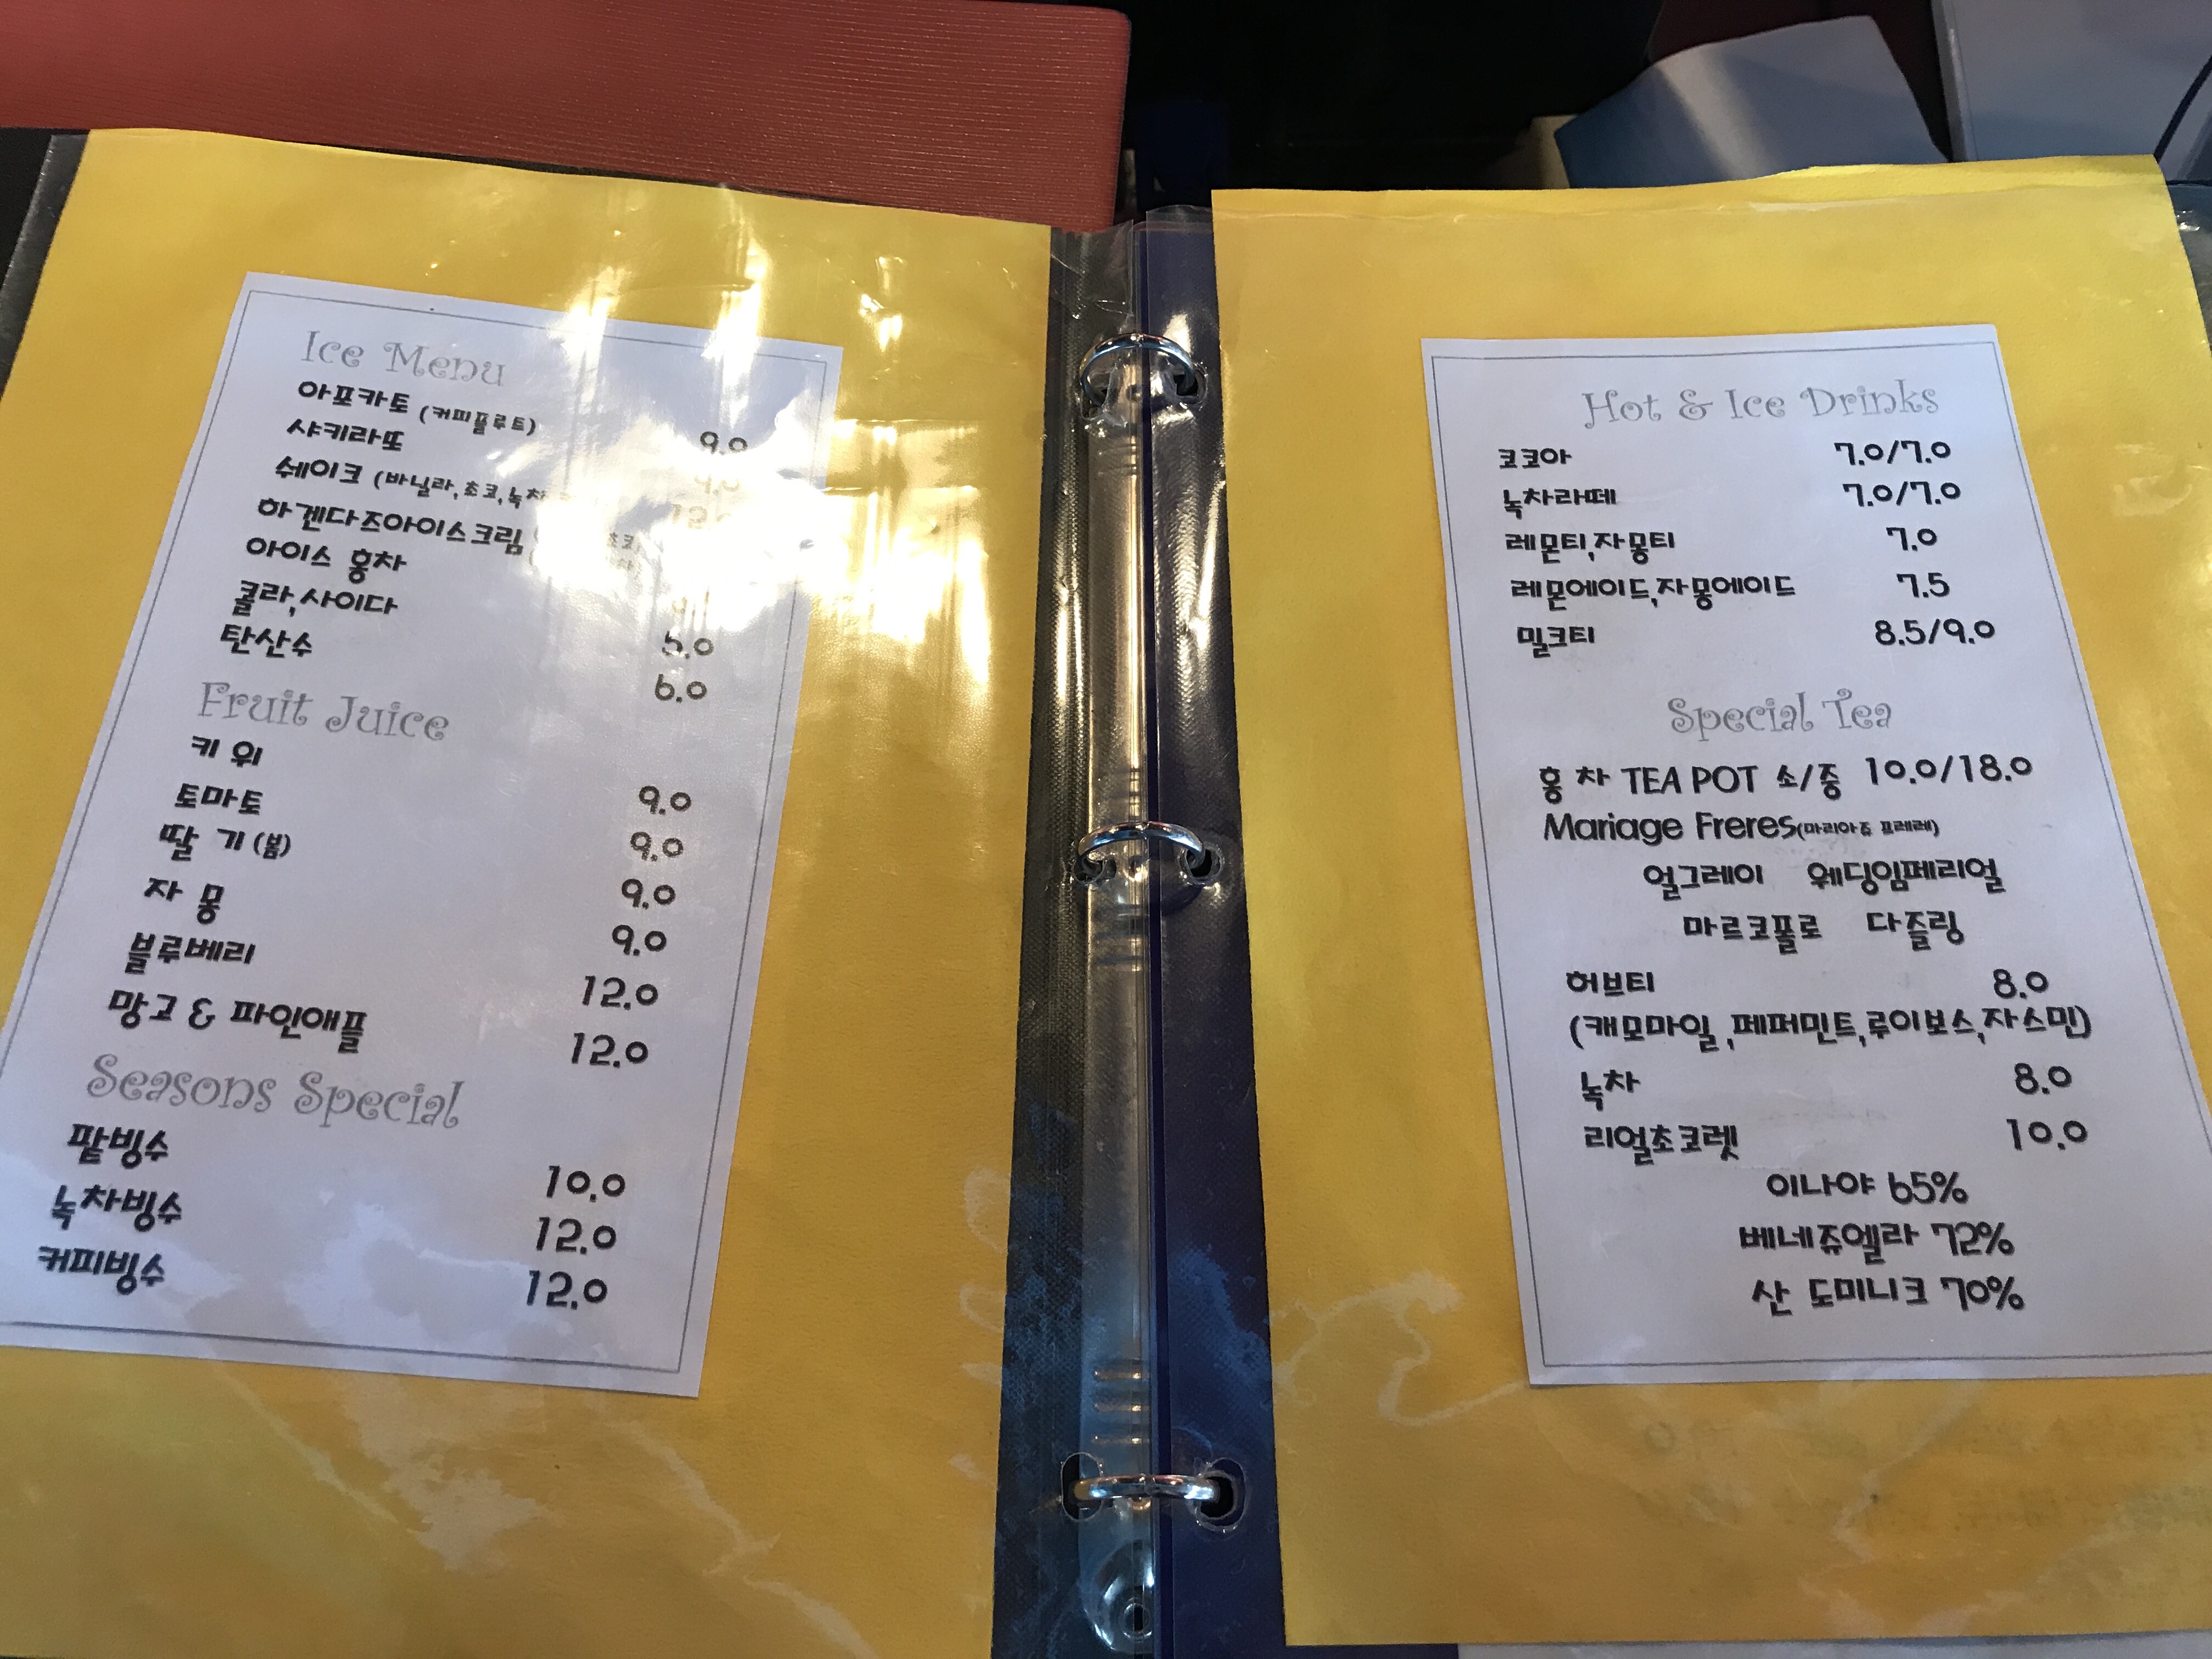 Ice Menu
아포카토 (커피플루트) 9.0
샤키라또
쉐이크 (바닐라,초코,녹차
하겐다즈아이스크림
아이스 홍차
콜라,사이다 5.0
탄산수 6.0
Fruit Juice
키 위 9.0
토마토 9.0
딸 기 (봄) 9.0
자 몽 9.0
블루베리 12.0
망고 & 파인애플 12.0
Seasons Special
팥빙수 10.0
녹차빙수 12.0
커피빙수 12.0
Hot & Ice Drinks
코코아 7.0/7.0
녹차라떼 7.0/7.0
레몬티,자몽티 7.0
레몬에이드,자몽에이드 7.5
밀크티 8.5/9.0
Special Tea
홍 차 TEA POT 소/중 10.0/18.0
Mariage Freres(마리아쥬 프레레)
얼그레이 웨딩임페리얼
마르코폴로 다즐링
허브티 8.0
(캐모마일,페퍼민트,루이보스,자스민)
녹차 8.0
리얼초코렛 10.0
이나야 65%
베네쥬엘라 72%
산 도미니크 70%